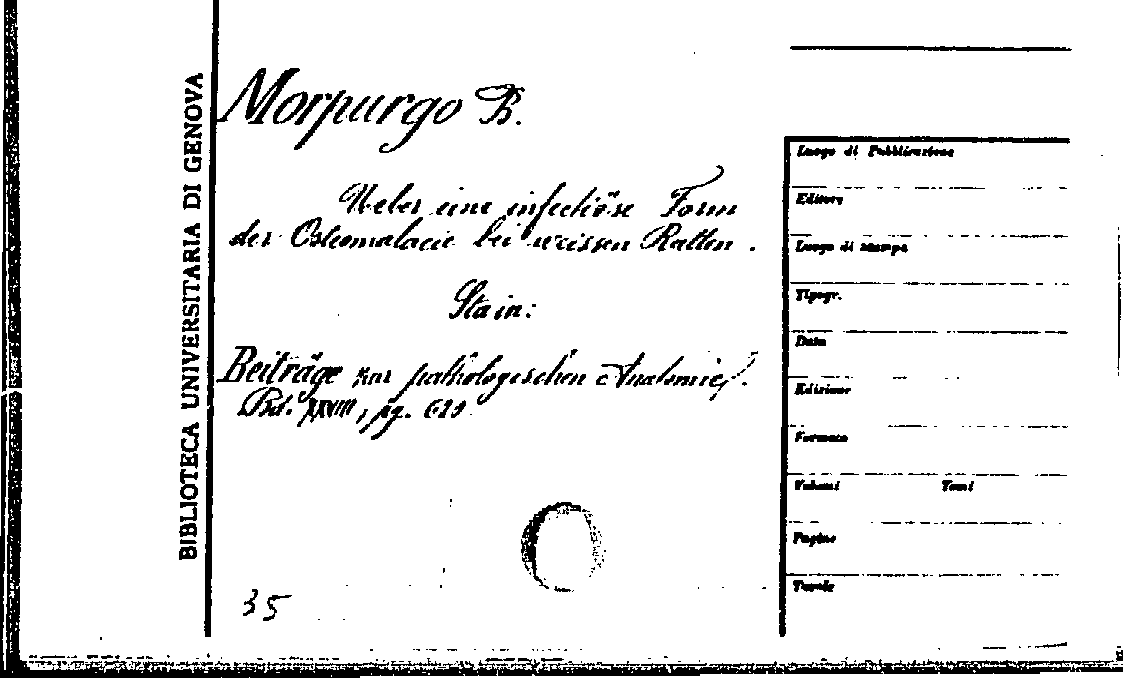 BIBLIOTECA UNIVERSITARIA DI GENOVA
Morpurgo B.
Ueber eine infectiöse Form
der Osteomalacie bei weissen Ratten.
Sta in:
Beiträge zur pathologischen Anatomie
Bd. XXVIII, pg. 620
35
Luogo di Pubblicazione
Editore
Luogo di stampa
Tipogr.
Data
Edizione
Formato
Volumi Tomi
Pagine
Tavole